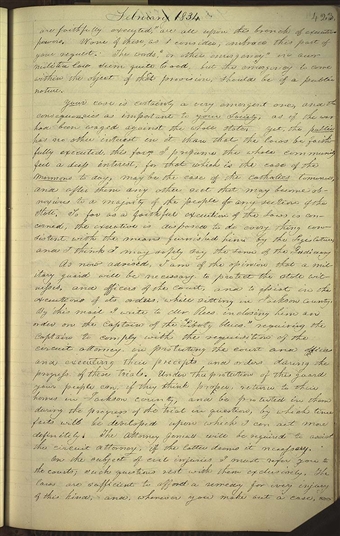 February 1834
435
are faithfully executed," are all upon the branch of executive
powers. None of these, as I consider, embrace this part of
your request. The words "or other emergency" in our
militia law seem quite broad, but the emergency to come
within the object of that provision, should be of a public
nature.
Your case is certainly a very emergent one, and the
consequences as important to your Society, as if the war
had been waged against the whole State, yet the public
has no other interest in it, than that the laws be faith-
fully executed; thus far, I presume the whole community
feel a deep interest, for that which is the case of the
Mormons to day, may be the case of the Catholics tomorrow,
and after them any other sect that may become ob-
noxious to a majority of the people of any section of the
State. So far as a faithful execution of the laws is con-
cerned, the executive is disposed to do every thing con-
sistent with the means furnished him by the legislature,
and I think I may safely say the same of the Judiciary.
As now advised, I am of the opinion that a mil-
itary guard will be necessary to protect the state wit-
nesses, and officers of the court, and to assist in the
execution of its orders, while sitting in Jackson county.
By this mail I write to Mr. Reese, inclosing him an
order on the Captain of the "Liberty blues" requiring the
captain to comply with the requisition of the
circuit attorney in protecting the court and officers
and executing their precepts and orders during the
progress of these trials. Under the protection of this guard
your people can, if they think proper, return to their
homes in Jackson county, and be protected in them
during the progress of the trial in question, by which time
facts will be developed upon which I can act more
definitely. The Attorney General will be required to assist
the circuit attorney, if the latter deems it necessary.
On the subject of civil injuries I must refer you to
the courts; such questions rest with them exclusively. The
laws are sufficient to afford a remedy for every injury
of this kind, and, whenever you make out a case,